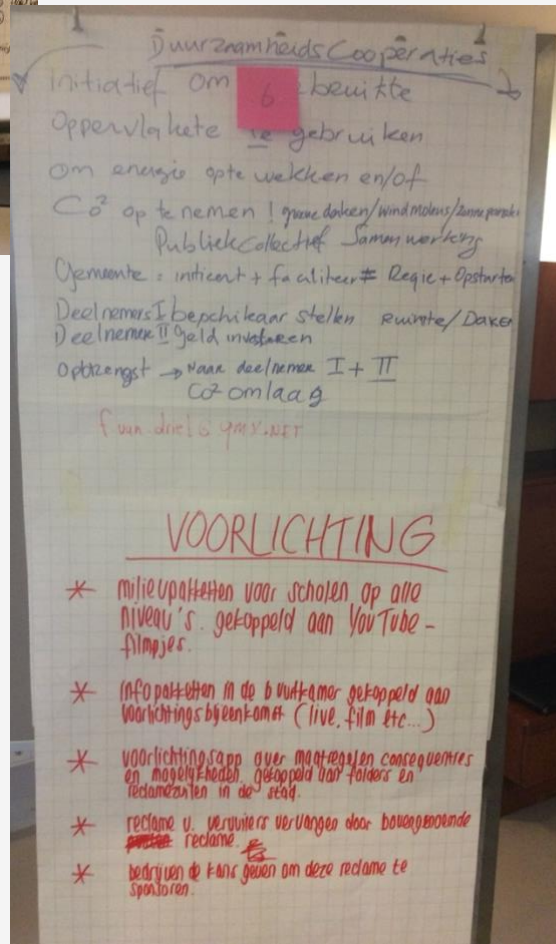 DuurzaamheidsCoöperaties
initiatief om benutte
6
Oppervlakte te gebruiken
om energie opte wekken en/of
Co² op te nemen! groene daken/windmolens/zonnepanelen
Publiek Collectief Samenwerking
Gemeente = initieert + faciliteer ≠ Regie + Opstarten
Deelnemers I beschikbaar stellen Ruimte/Daken
Deelnemer II geld investeren
Opbrengst → Naar deelnemer I + II
Co² omlaag
VOORLICHTING
* milieupakketten voor scholen op alle
niveau's. gekoppeld aan YouTube-
filmpjes.
* infopakketten in de buurtkamer gekoppeld aan
voorlichtingsbijeenkomst (live, film etc...)
* voorlichtingsapp over maatregelen consequenties
en mogelijkheden. gekoppeld aan folders en
reclamezuilen in de stad.
* reclame v. vervuilers vervangen door bovengenoemde
reclame.
* bedrijven de kans geven om deze reclame te
sponsoren.